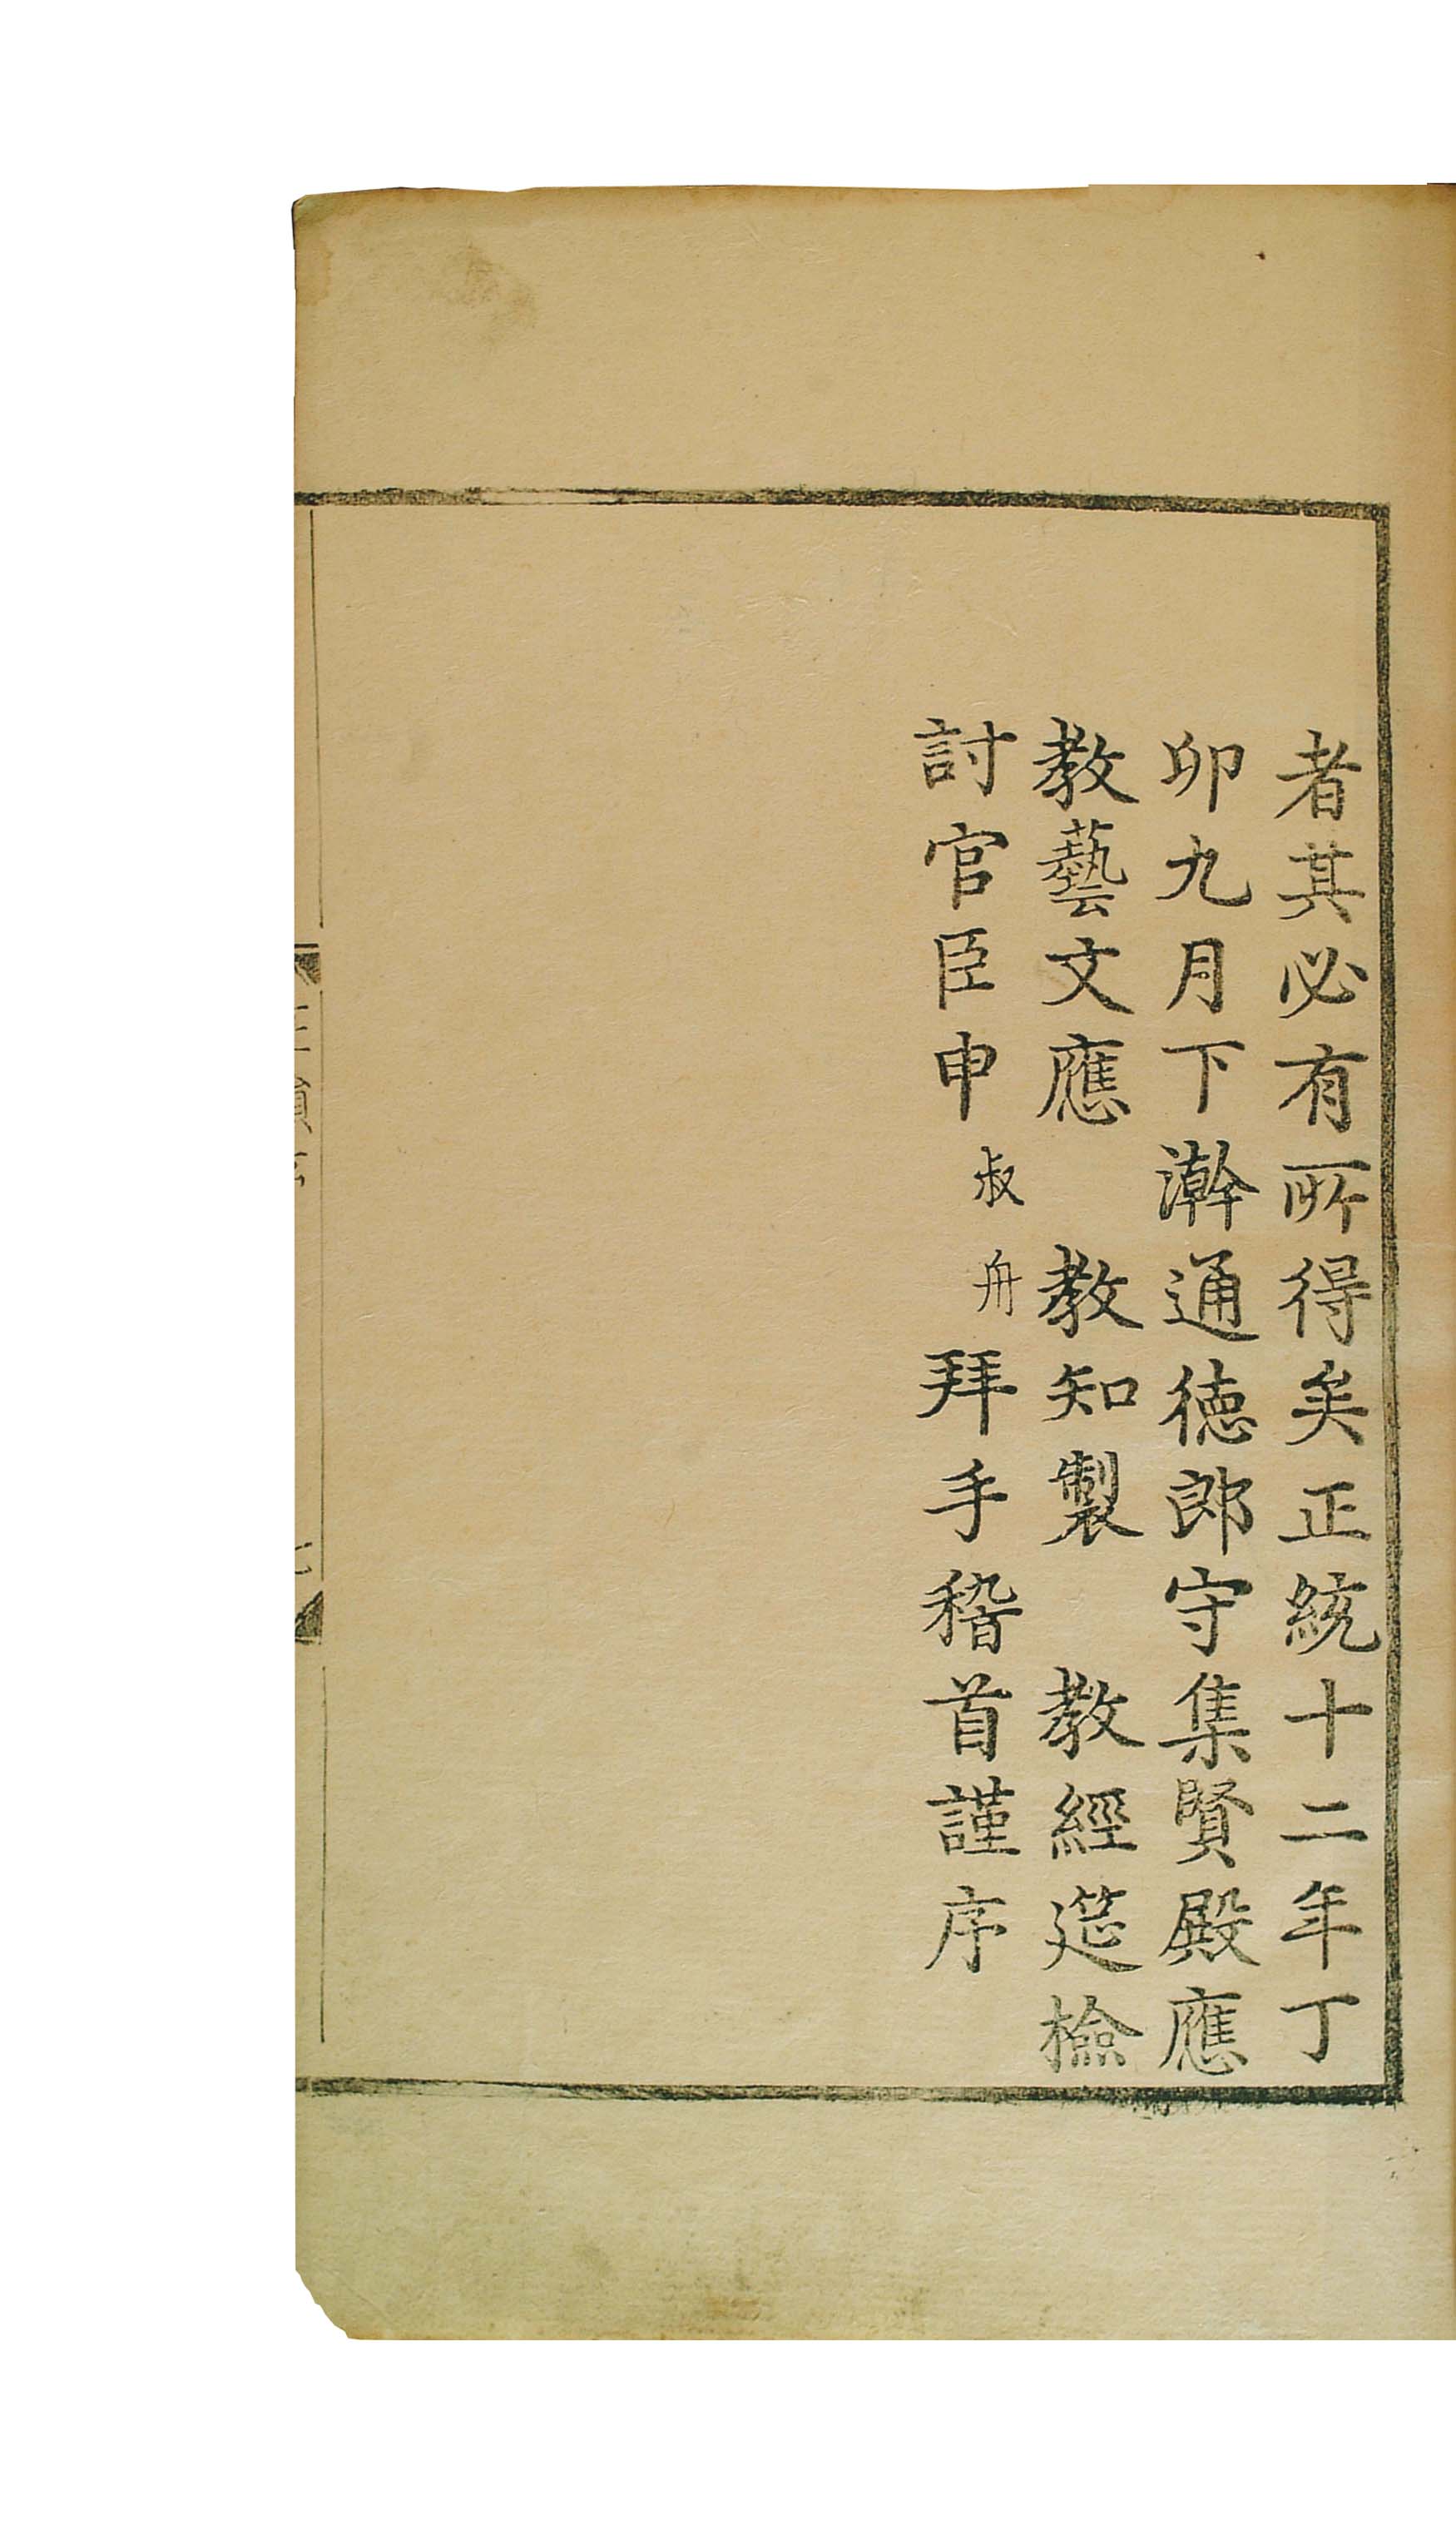 者其必有所得矣正統十二年丁
卯九月下澣通德郎守集賢殿應
教藝文應 教知製 教經筵檢
討官臣申叔舟拜手稽首謹序